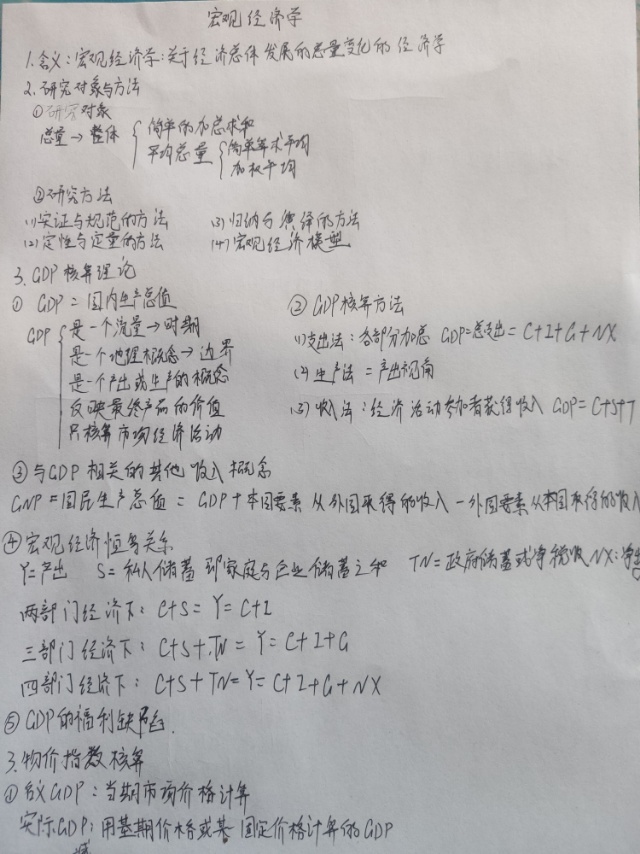 宏观经济学
1.含义:宏观经济学:关于经济总体发展的总量变化的经济学
2.研究对象与方法
①研究对象
总量→整体 { 简单的加总求和
平均总量 { 简单算术平均
加权平均
②研究方法
(1)实证与规范的方法 (3)归纳与演绎的方法
(2)定性与定量的方法 (4)宏观经济模型
3.GDP核算理论
① GDP=国内生产总值
GDP { 是一个流量→时期
是一个地理概念→边界
是一个产出或生产的概念
反映最终产品的价值
只核算市场经济活动
② GDP核算方法
(1)支出法:各部分加总 GDP=总支出=C+I+G+NX
(2)生产法=产出视角
(3)收入法:经济活动参与者获得收入 GDP=C+S+T
③与GDP相关的其他收入概念
GNP=国民生产总值=GDP+本国要素从外国取得的收入-外国要素从本国取得的收入
④宏观经济恒等关系
Y=产出 S=私人储蓄即家庭与企业储蓄之和 TN=政府储蓄或净税收 NX:净
两部门经济下:C+S=Y=C+I
三部门经济下:C+S+TN=Y=C+I+G
四部门经济下:C+S+TN=Y=C+I+G+NX
⑤GDP的福利缺陷.
3.物价指数核算
①名义GDP:当期市场价格计算
实际GDP:用基期价格或某固定价格计算的GDP